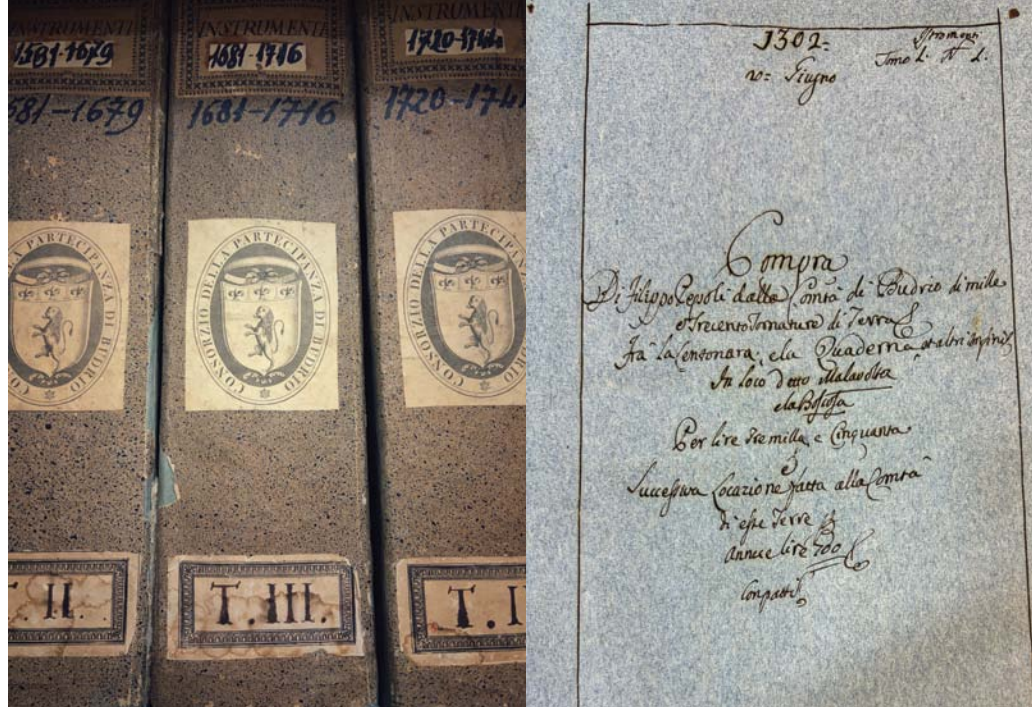 INSTRUMENTI
1581-1679
581-1679
CONSORZIO DELLA PARTECIPANZA DI BUDRIO
T. II.
INSTRUMENTI
1681-1716
1681-1716
CONSORZIO DELLA PARTECIPANZA DI BUDRIO
T. III.
INSTRUMENTI
1720-1741
1720-1741
CONSORZIO DELLA PARTECIPANZA DI BUDRIO
T. I
1302
Giugno
Tomo
Compra
Di Filippo Pepoli dalla Comtà di Budrio di mille
e Trecento Tornature di Terra
Frà la Centonara, e la Quaderna et altri
In loco detto Malavolta
e la Boscosa
Per lire Tremilla, e Cinquanta
e
Successiva Locazione fatta alla Comtà
di esse Terre
annue lire 700
Con patti